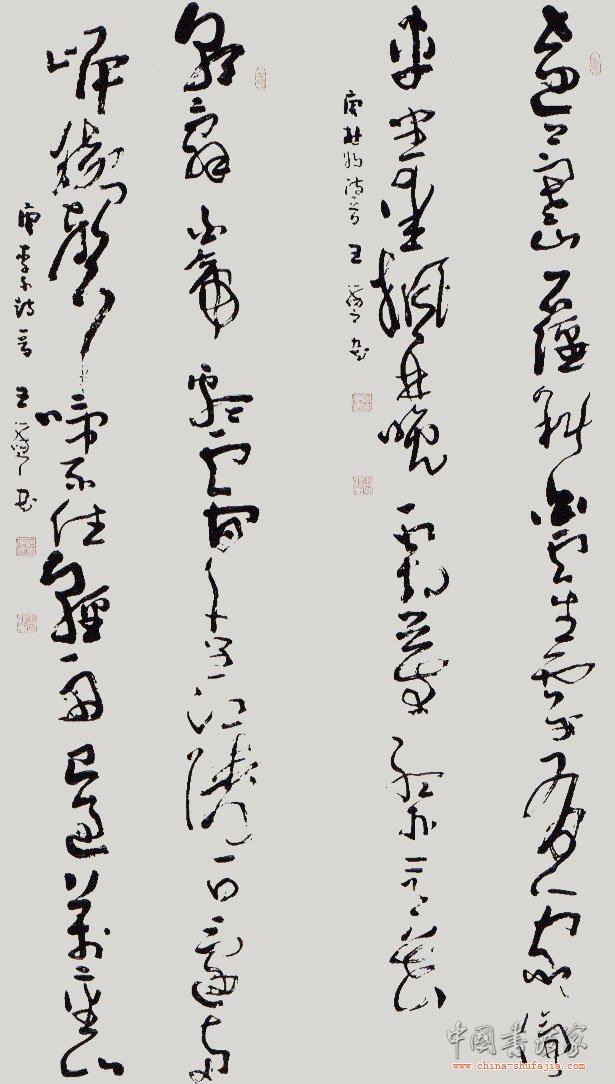 遠上寒山石徑斜白雲生處有人家停
車坐愛楓林晚霜葉紅於二月花
唐杜牧詩一首 王 书
朝辭白帝彩雲間千里江陵一日還兩
岸猿聲啼不住輕舟已過萬重山
唐李白詩一首 王 书
中國書法家
www.china-shufajia.com